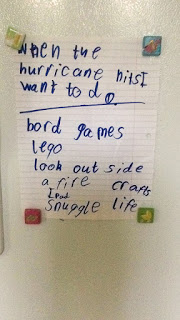 when the
hurricane hits I
want to do
bord games
lego
look out side
a fire crafts
I Pad
snuggle life